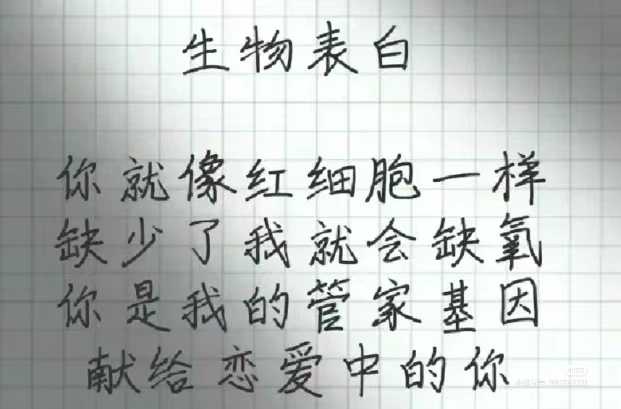 生物表白
你就像红细胞一样
缺少了我就会缺氧
你是我的管家基因
献给恋爱中的你